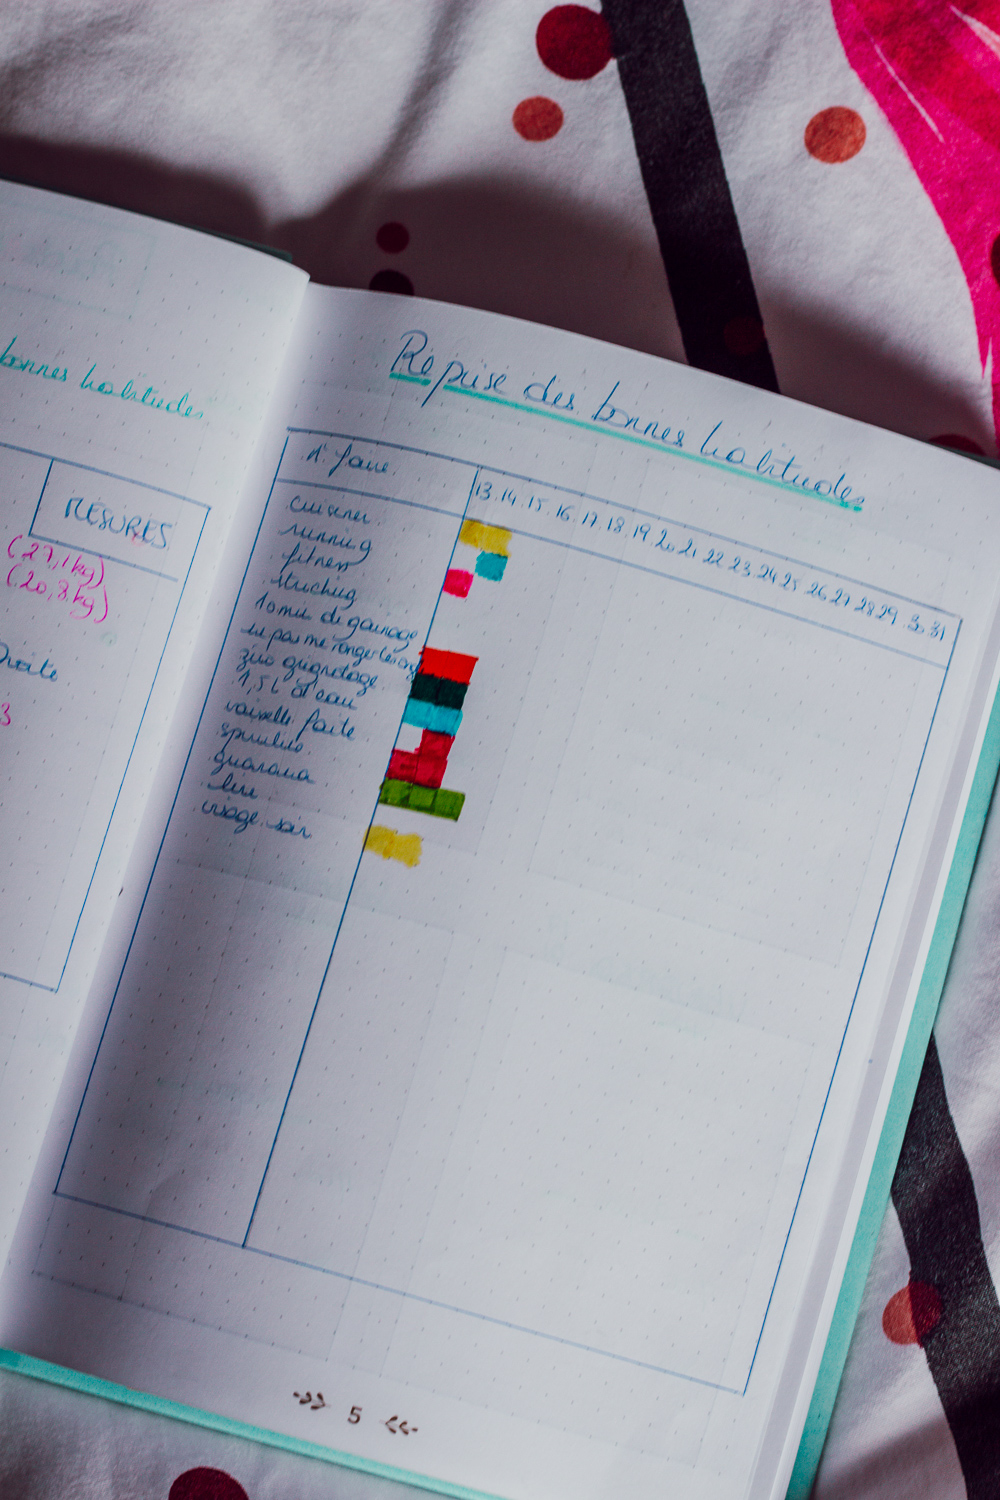 bonnes habitudes
MESURES
(27,1kg)
(20,8kg)
Droite
3
Reprise des bonnes habitudes
A faire
13 14 15 16 17 18 19 20 21 22 23 24 25 26 27 28 29 30 31
cuisiner
running
fitness
stretching
10 min de gainage
ne pas me ronger les ong
zéro grignotage
1,5 L d'eau
vaisselle faite
spiruline
guarana
lire
visage soir
5